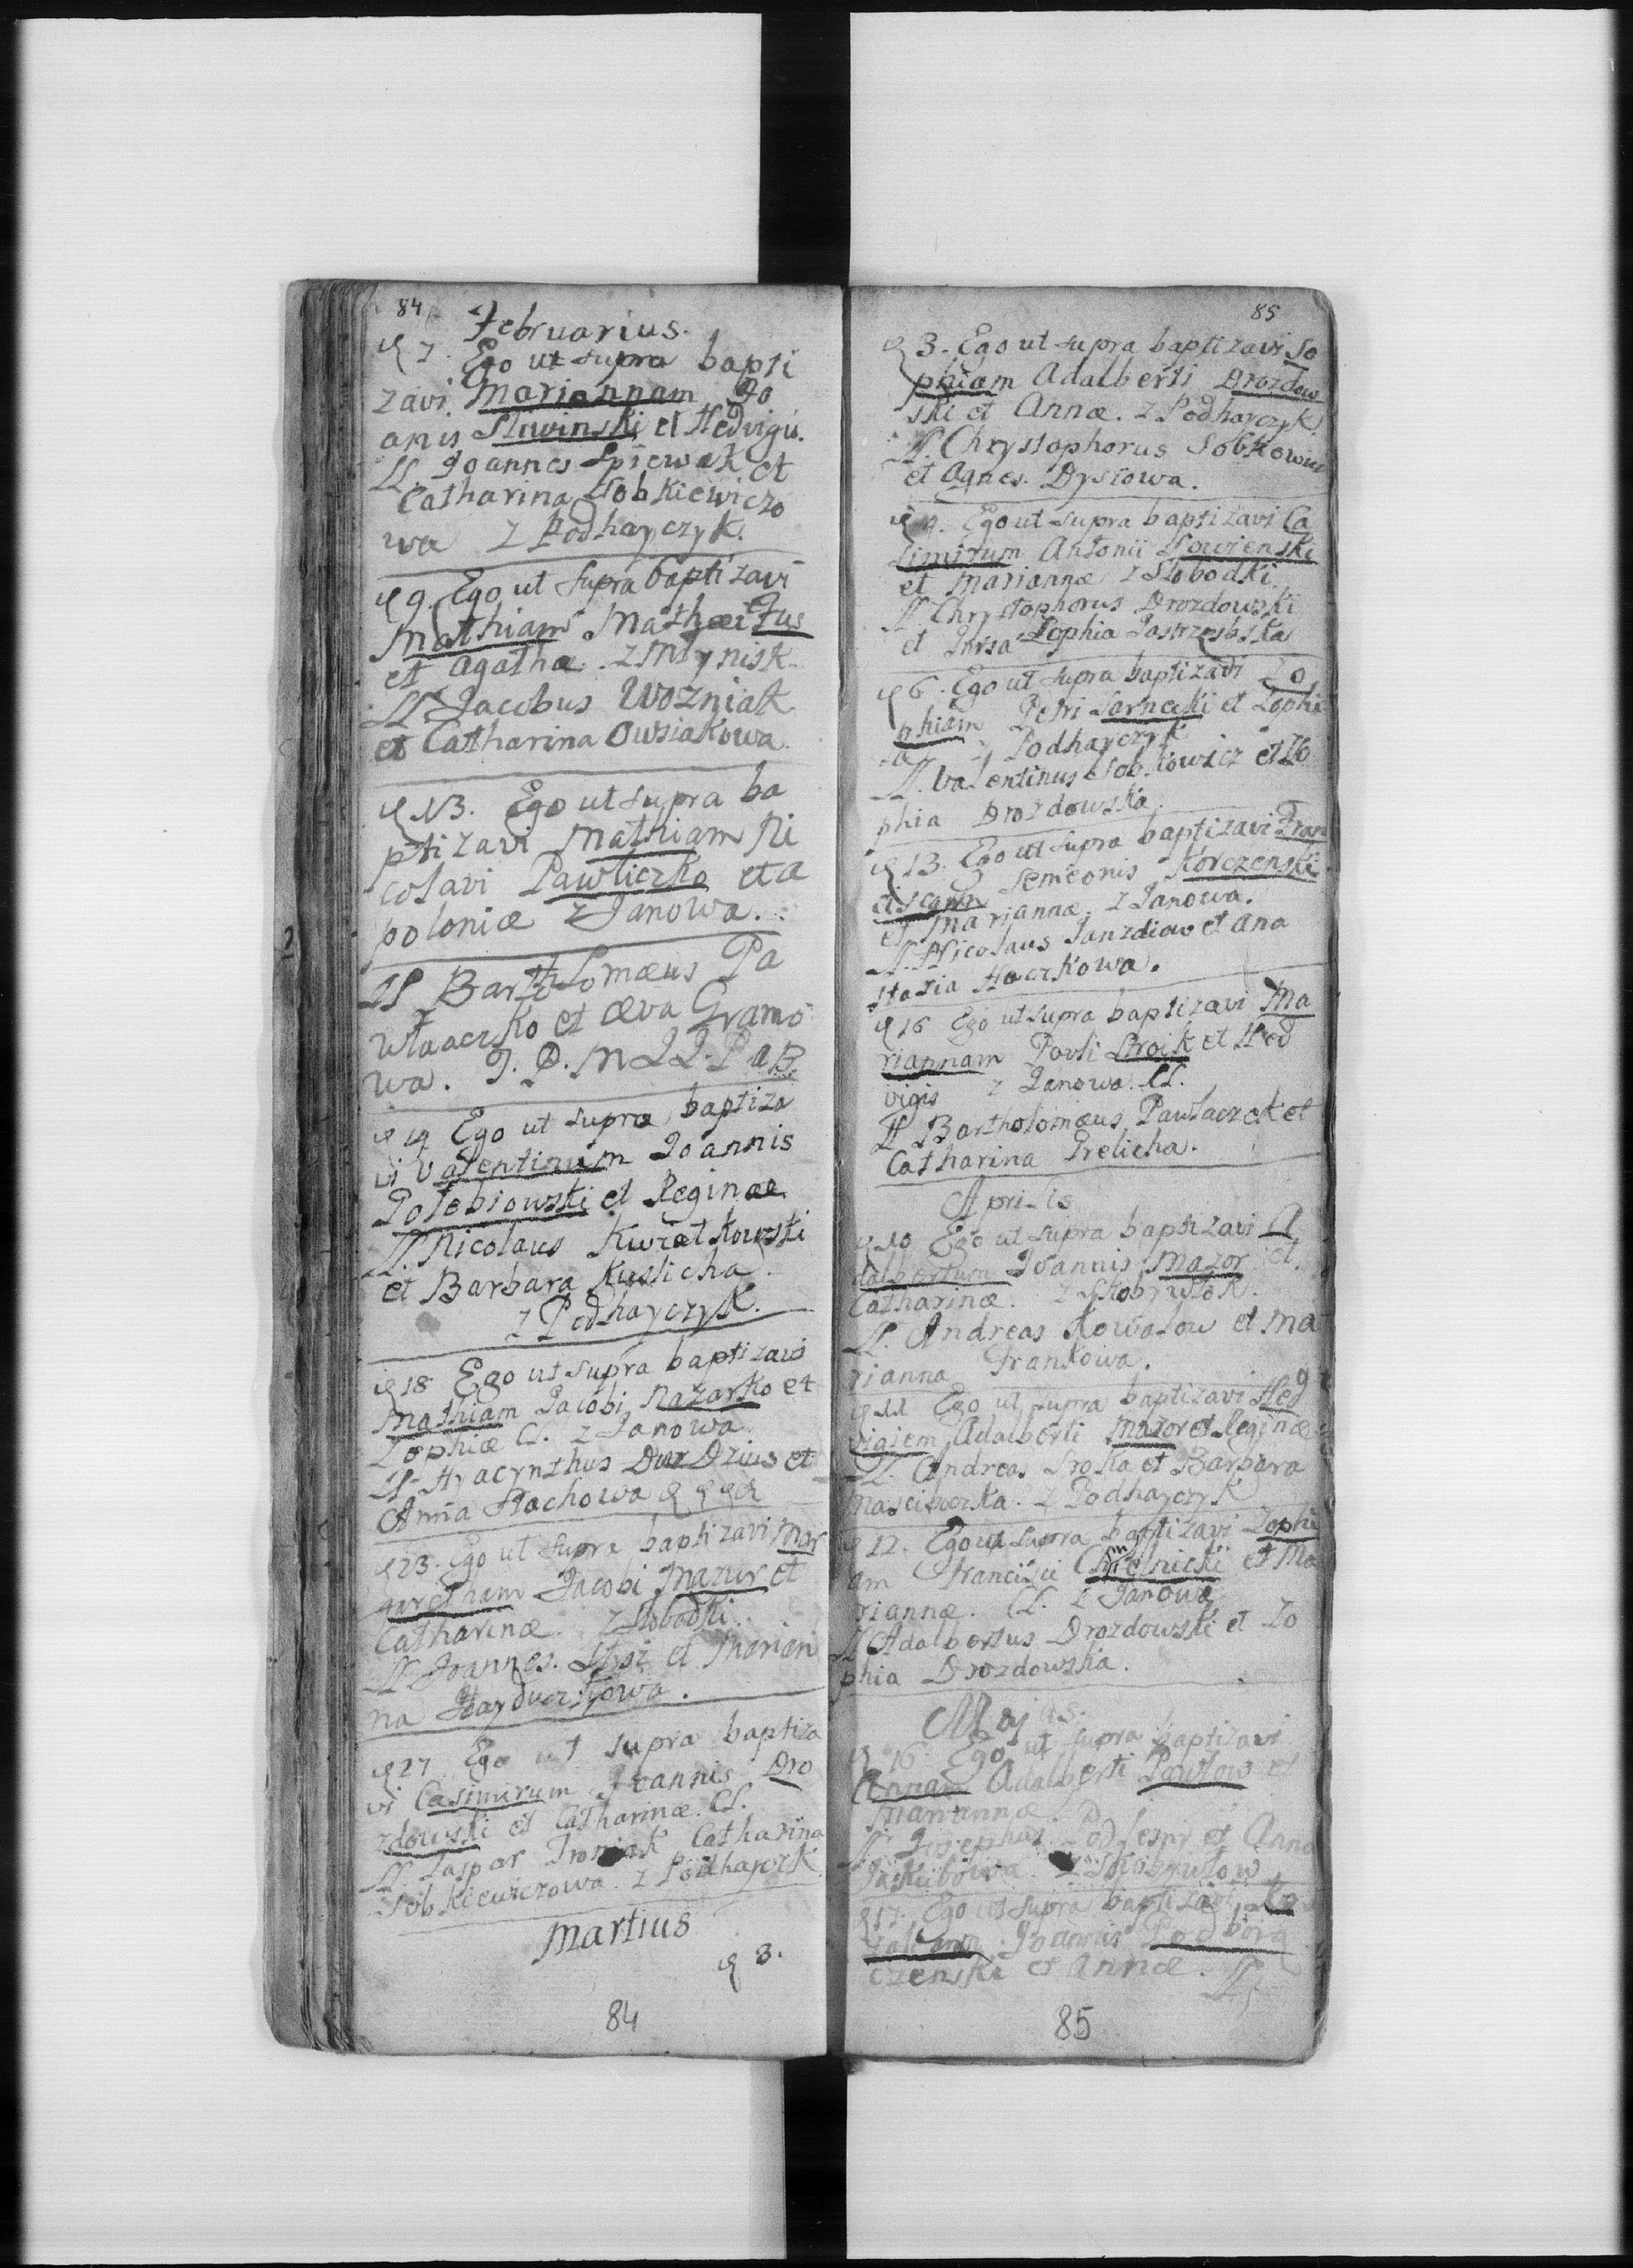 84
Februarius.
7. Ego ut supra bapti
zavi Mariannam Jo
anis Sliwinski et Hedvigis.
LL. Joannes Spiewak et
Catharina Sobkiewiczo
wa z Podhayczyk.
9. Ego ut supra baptizavi
Mathiam Mathæi Fus
et Agathæ. z Mlynisk
LL Jacobus Wozniak
et Catharina Owsiakowa
13. Ego ut supra ba
ptizavi Mathiam Ni
colavi Pawliczko et A
poloniæ z Janowa.
LL Bartholomæus Pa
właaczko et Æva Gramo
wa.
14 Ego ut supra baptiza
vi Valentinum Joannis
Golebiowski et Reginæ
LL. Nicolaus Kwiatkowski
et Barbara Kuslicha
z Podhayczyk.
18 Ego ut supra baptizavi
Mathiam Jacobi Nazarko et
Zophiæ CL. z Janowa
LL Hyacynthus Dur Dzius et
Anna Stachowa
23. Ego ut supra baptizavi Mar
garetham Jacobi Mazur et
Catharinæ. z Slobodki
LL Joannes et Marian
na Hayduczkowa.
27 Ego ut supra baptiza
vi Casimirum Joannis Dro
zdowski et Catharinæ. CL.
LL. Gaspar Catharina
Sobkiewiczowa. z Podhayczk
Martius
3.
84
85
3. Ego ut supra baptizavi So
phiam Adalberti Drozdow
ski et Annæ. z Podhayczyk
LL. Chrystophorus Sobkowicz
et Agnes. Dysiowa.
4. Ego ut supra baptizavi Ca
simirum Antonii Slowienski
et Mariannæ z Slobodki
LL Chrystophorus Drozdowski
et Zophia Jastrzesbska
6. Ego ut supra baptizavi Zo
phiam Petri Sarnecki et Zophi
a z Podhayczyk
LL. Valentinus Sobkowicz et Zo
phia Drozdowska
13. Ego ut supra baptizavi Fran
ciscam Semeonis Korczenski
et Mariannæ z Janowa.
LL. Nicolaus Janzdiow et Ana
stazia Haczkowa.
16 Ego ut supra baptizavi Ma
riannam Pavli Stroik et Hed
vigis z Janowa. CL.
LL Bartholomæus Pawlaczek et
Catharina Grelicha.
Aprilis
10 Ego ut supra baptizavi A
dalbertum Joannis Mazor et
Catharinæ. z Skobywlok.
LL. Andreas Kowalow et Ma
rianna Frankowa.
11 Ego ut supra baptizavi Hed
vigiem Adalberti Mazor et Reginæ
LL. Andreas Sroka et Barbara
z Podhayczyk
12. Ego ut supra baptizavi Zophi
am Francisci Chmelnicki et Ma
riannæ. CL. z Janowa
LL Adalbertus Drozdowski et Zo
phia Drozdowska.
Majus.
16. Ego ut supra baptizavi
Annam Adalberti Pawlow et
Mariannæ.
LL. Josephus Podlesny et Anna
Jakubowa.
17. Ego ut supra baptizavi
Joannis Podhora
czenski et Annæ. LL
85